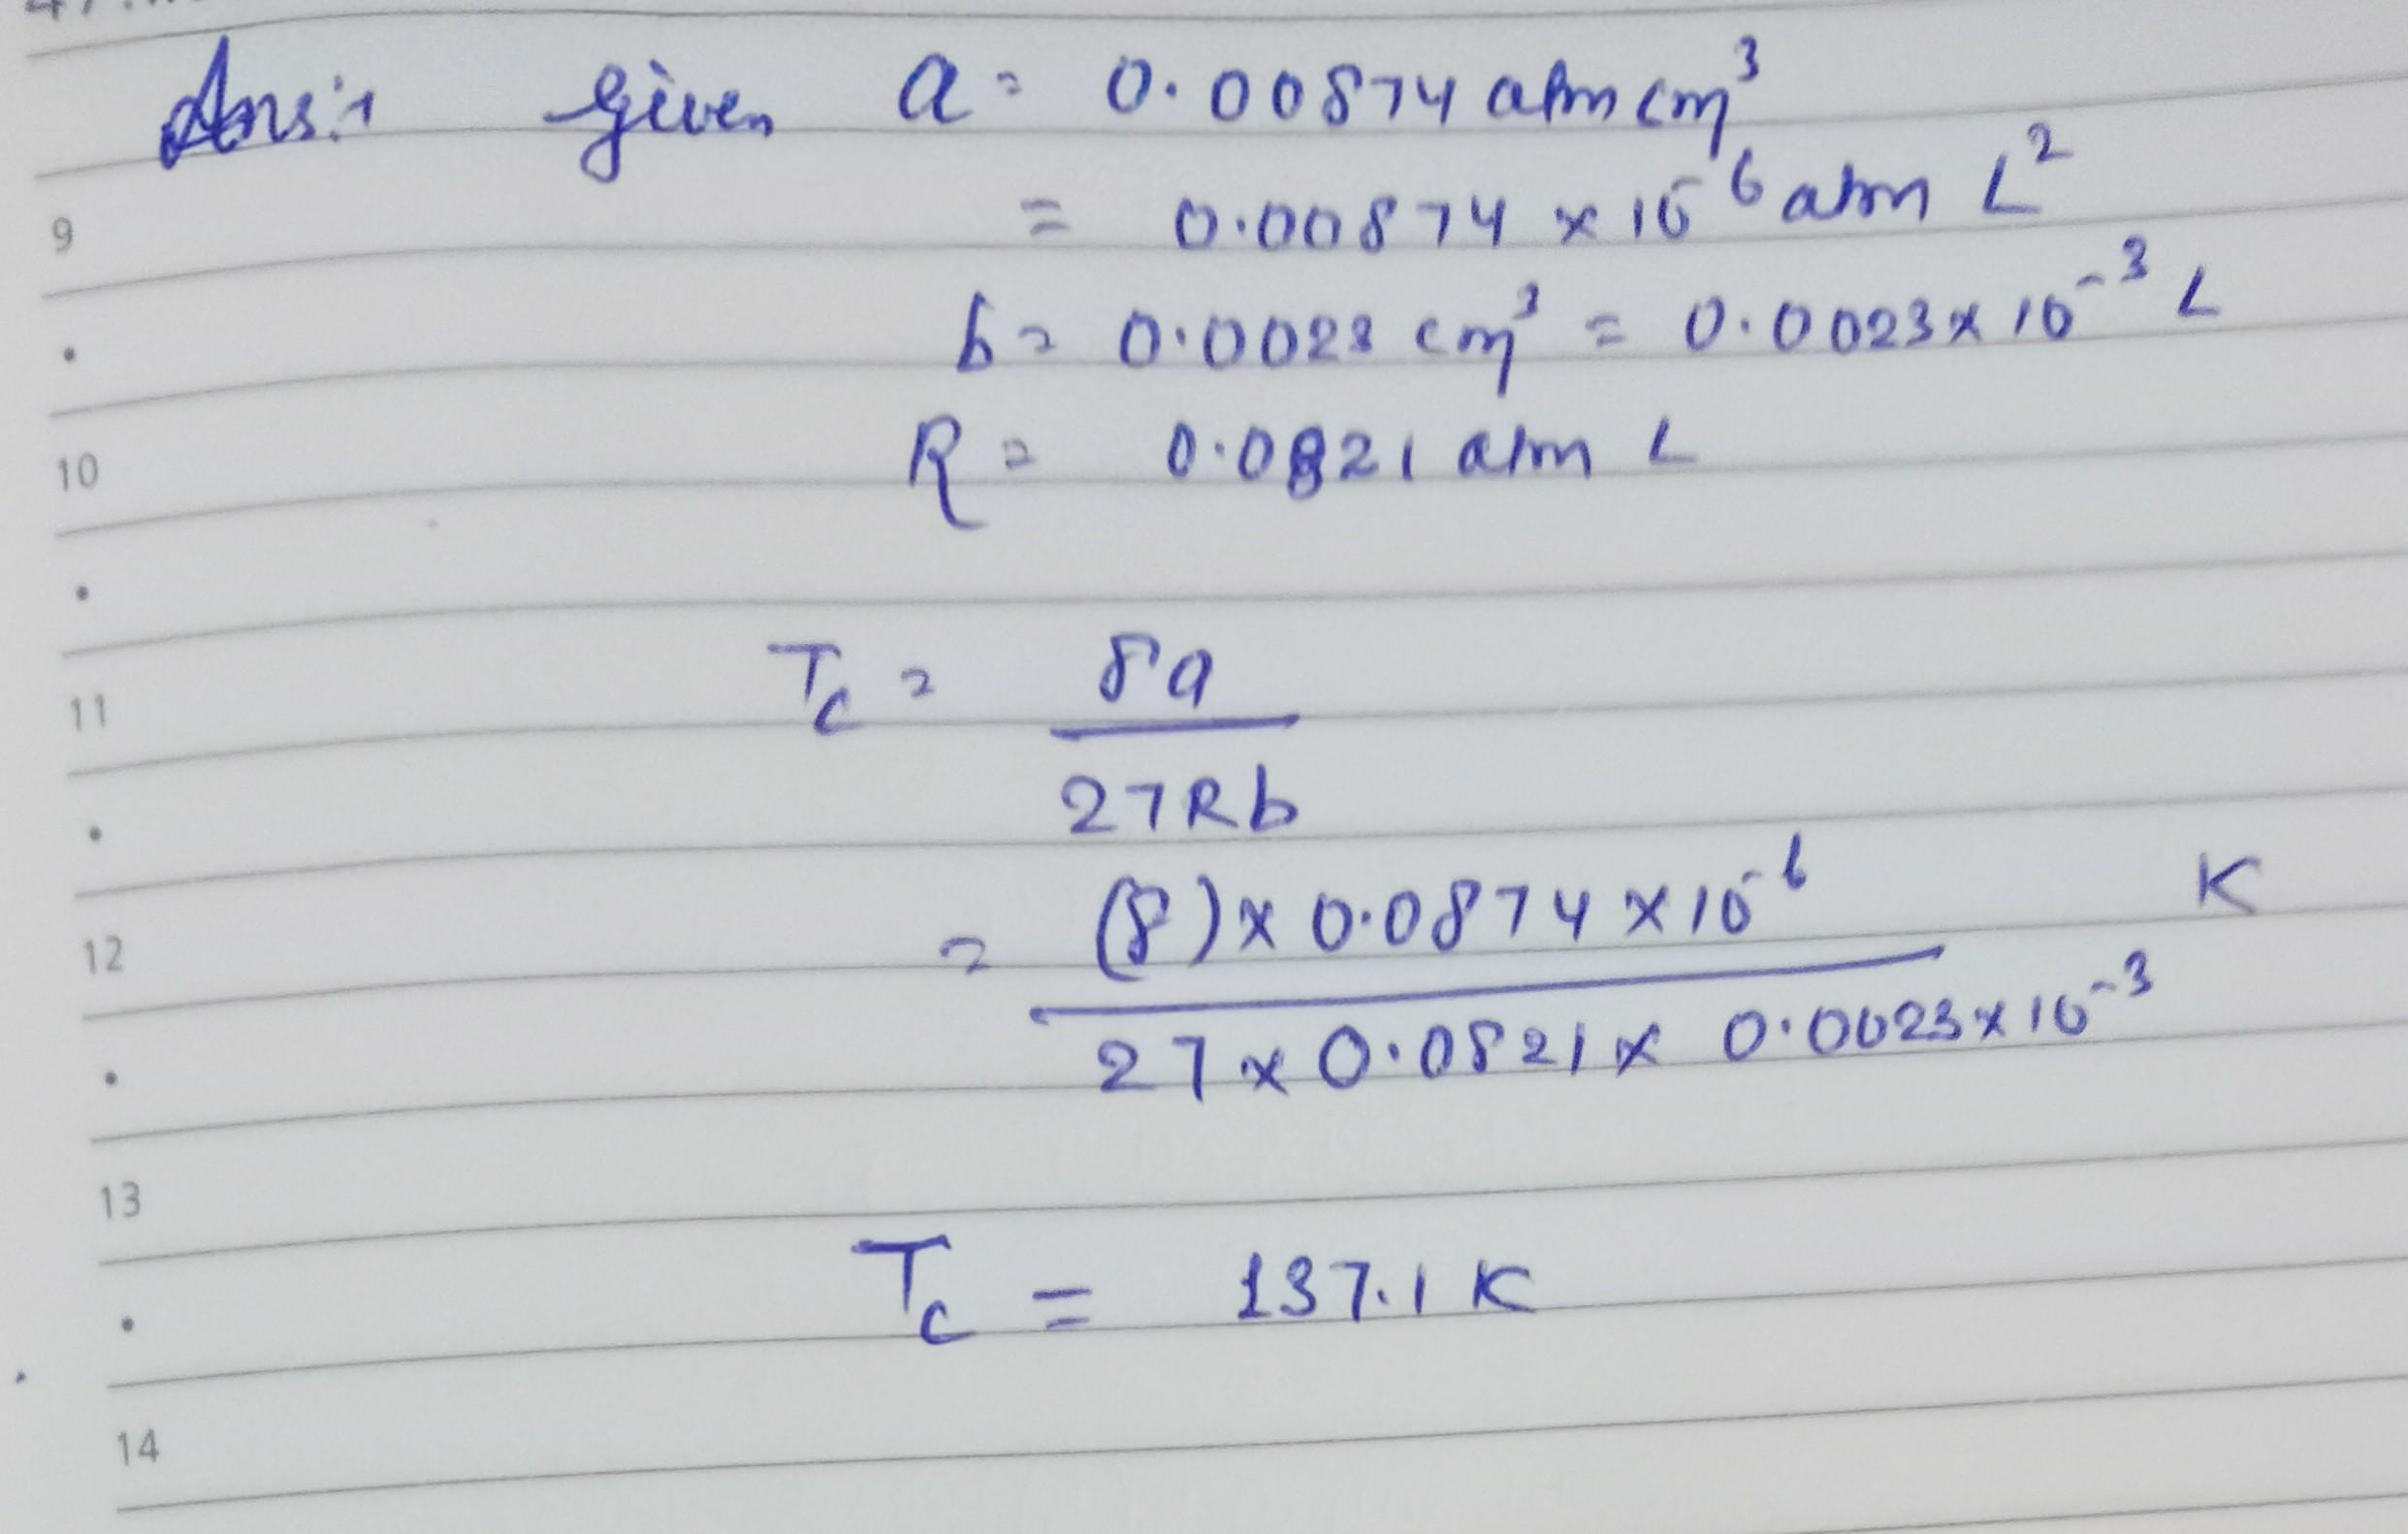 Ans:1 Given a = 0.00874 atm cm³
9 = 0.00874 x 10⁻⁶ atm L²
b = 0.0023 cm³ = 0.0023 x 10⁻³ L
10 R = 0.0821 atm L
11 Tc = 8a
27Rb
12 = (8) x 0.0874 x 10⁻⁶ K
27 x 0.0821 x 0.0023 x 10⁻³
13
Tc = 137.1 K
14